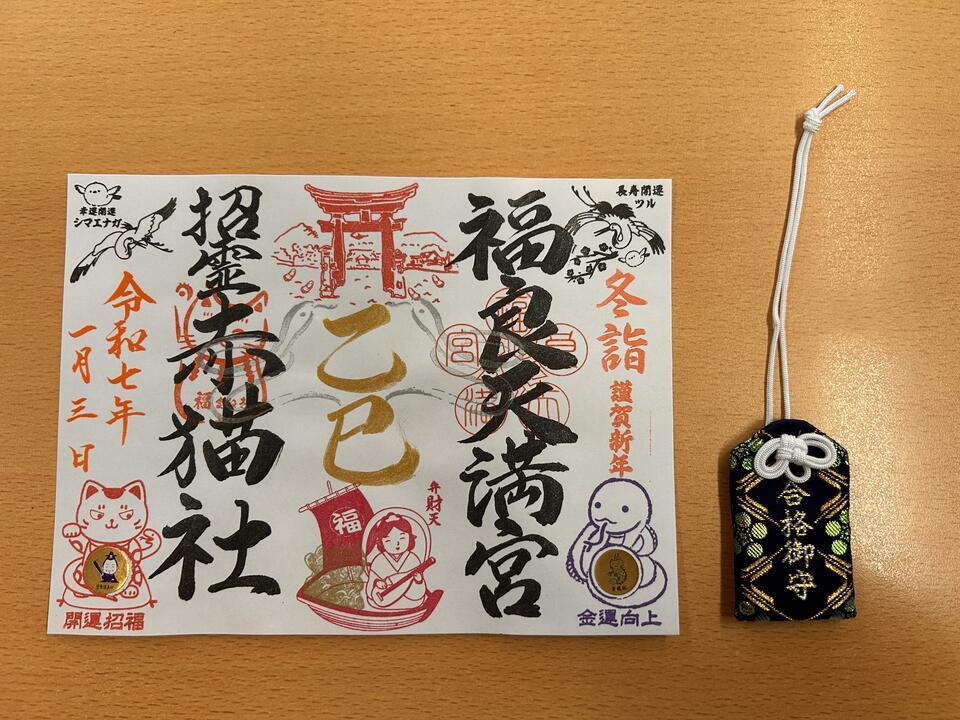 長寿開運
ツル
冬詣
謹賀新年
金運向上
福良天満宮
乙巳
福
弁財天
招霊赤猫社
幸運開運
シマエナガ
令和七年
一月三日
開運招福
合格御守